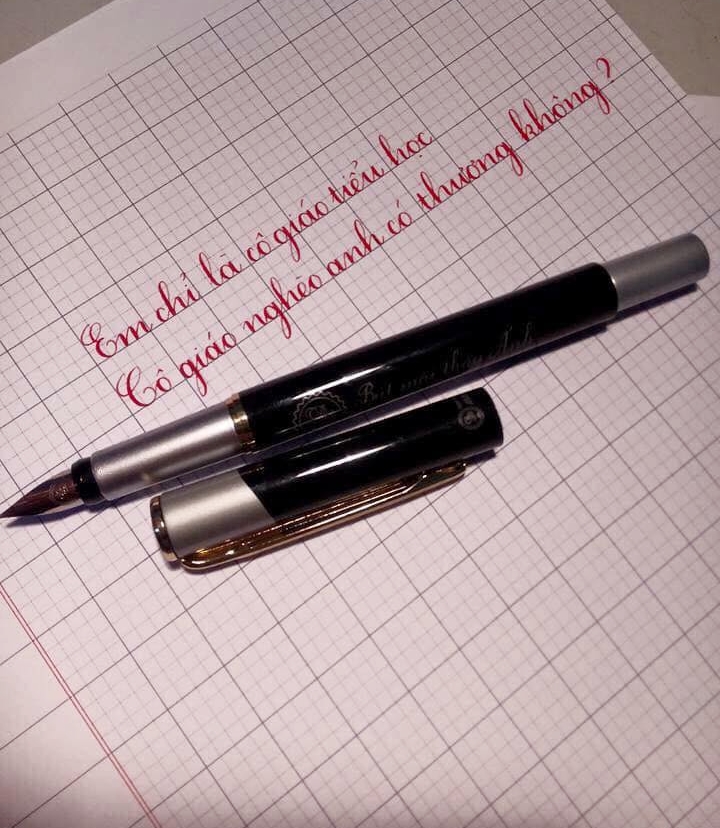 Em chỉ là cô giáo tiểu học
Cô giáo nghèo anh có thương không?
Bút mài thầy Ánh